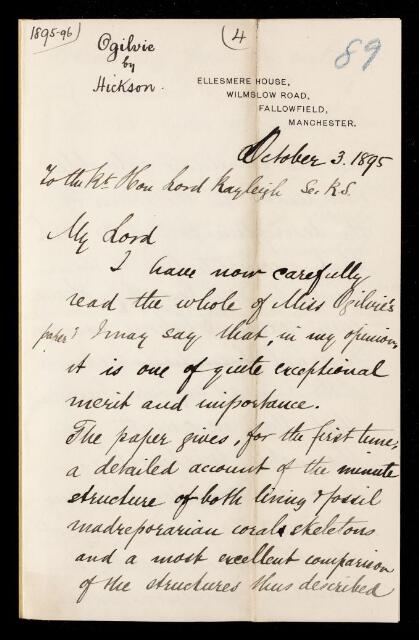 1895-96)
Ogilvie
by
Hickson.
(4
89
ELLESMERE HOUSE,
WILMSLOW ROAD,
FALLOWFIELD,
MANCHESTER.
October 3. 1895
To the Rt Hon Lord Rayleigh Sec. R.S.
My Lord
I have now carefully
read the whole of Miss Ogilvie's
paper & I may say that, in my opinion,
it is one of quite exceptional
merit and importance.
The paper gives, for the first time,
a detailed account of the minute
structure of both living & fossil
madreporarian coral skeletons
and a most excellent comparison
of the structures thus described